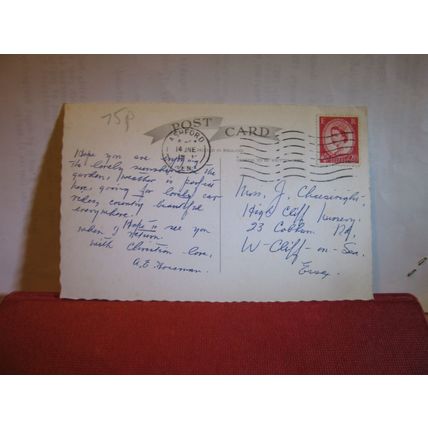 15p
POST CARD
ASHFORD
14 JNE
KENT
Hope you are enjoying
the lovely sunshine in the
garden, weather is perfect
here, going for lovely car
rides, country beautiful
everywhere!
Hope to see you
when I return.
with Christian love,
A.E. Horsman.
Miss J.
High Cliff Nursery,
23 Cobham Rd,
W-Cliff-on-Sea.
Essex.